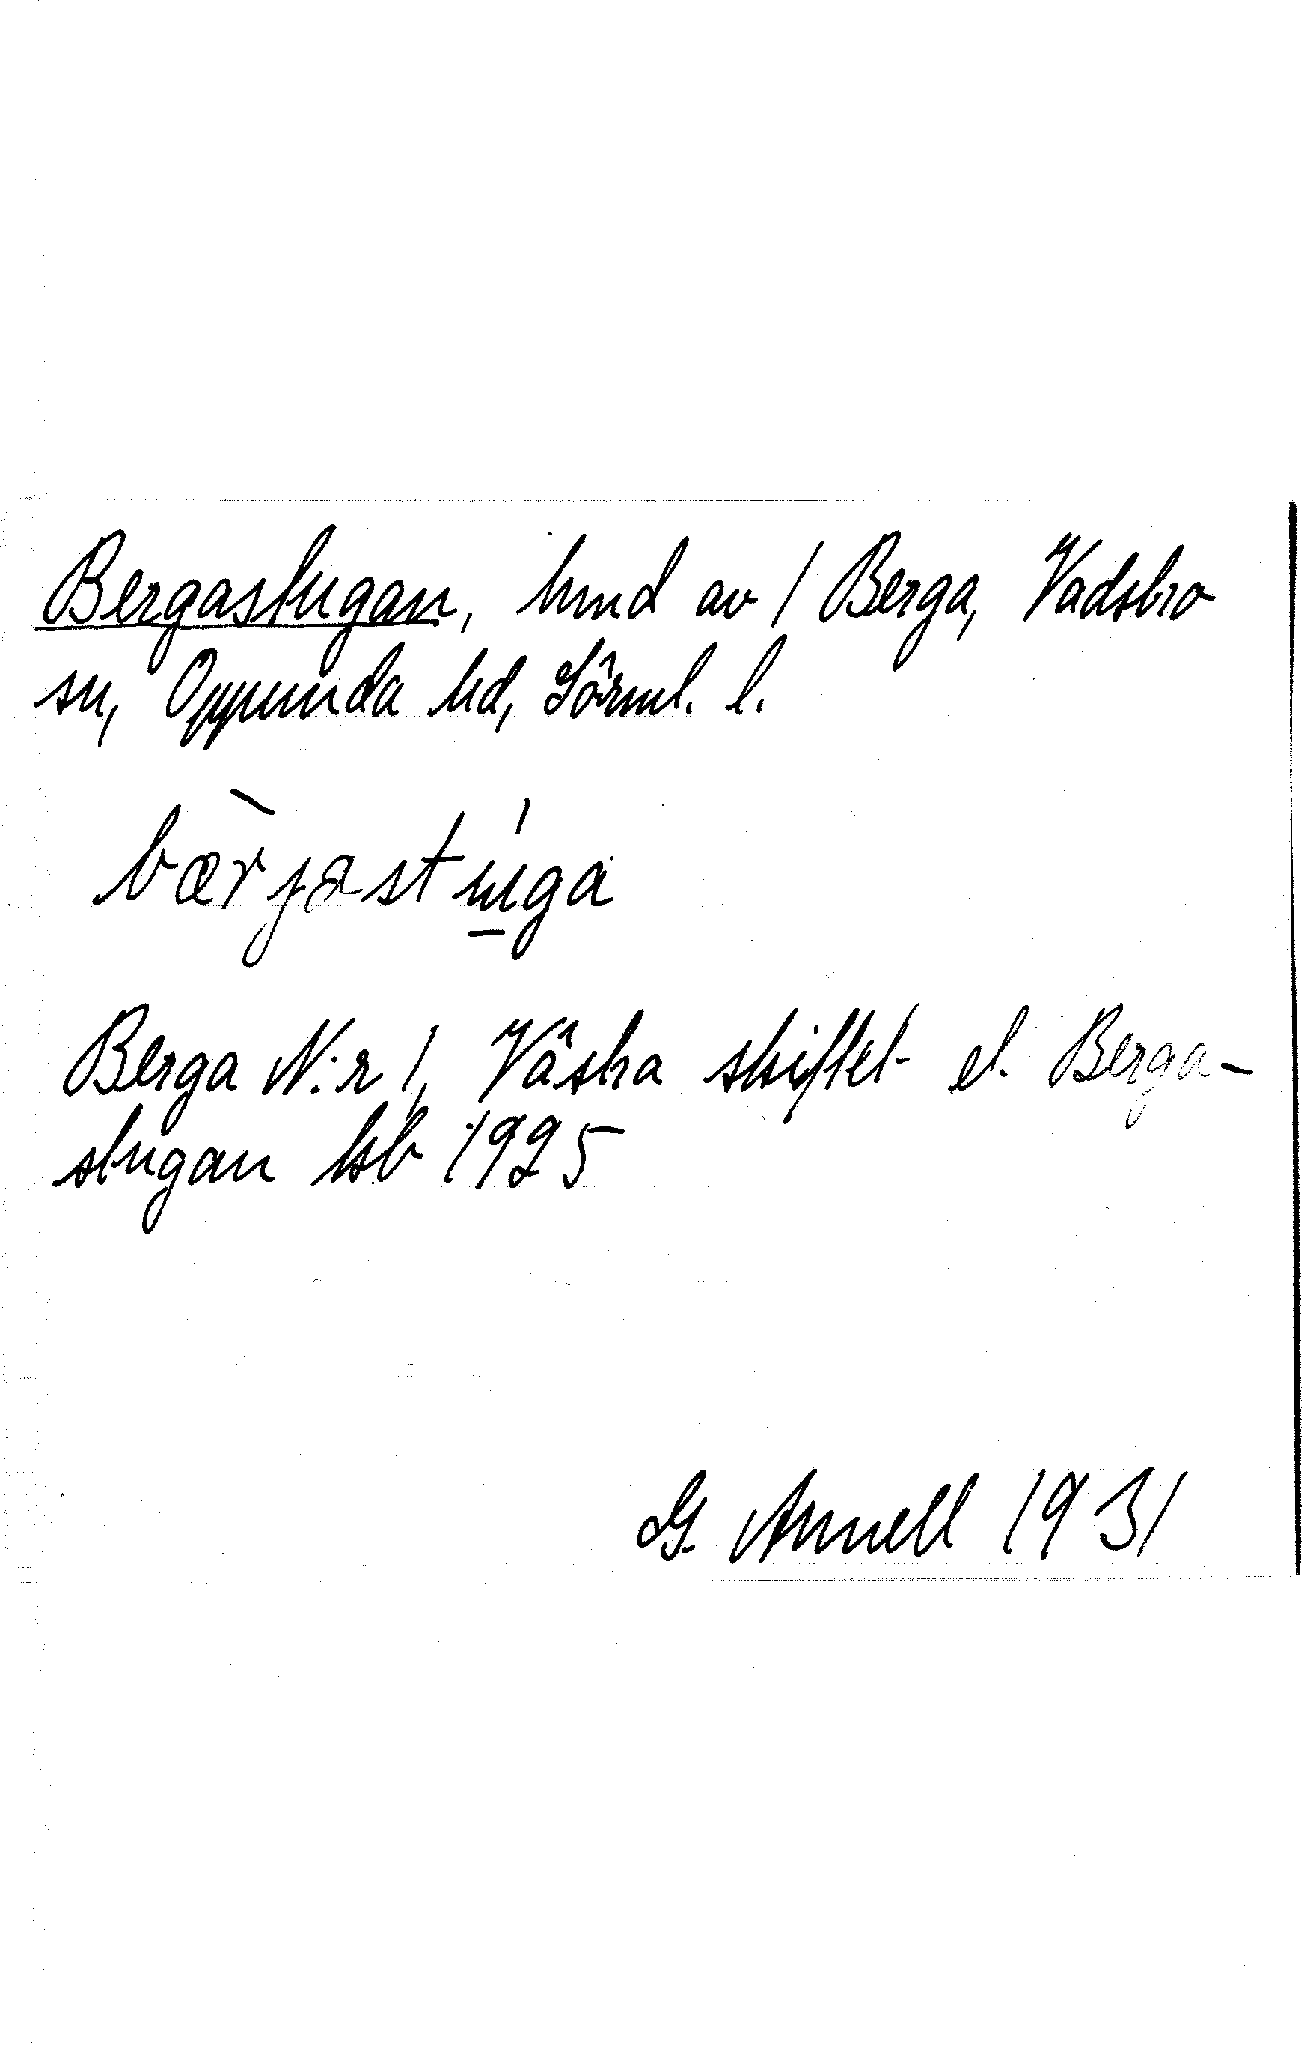 Bergastugan, hmd av 1 Berga, Vadsbro
sn, Oppunda hd, Sörml. l.
bær̀jastú̲ga
Berga N:r 1, Västra skiftet el. Berga-
stugan hsb 1925
G. Annell 1931